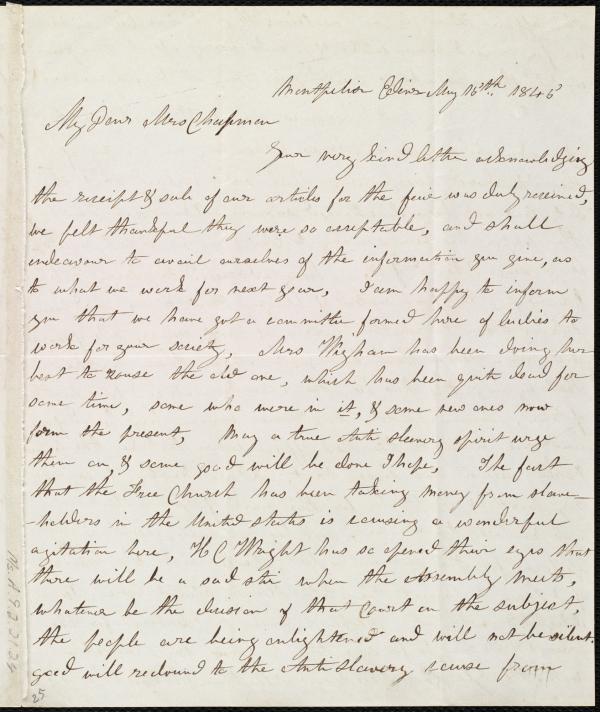 Montpelier Edinr May 15th. 1846
My Dear Mrs Chapman
Your very kind letter acknowledging
the receipt & sale of our articles for the fair was duly received,
we felt thankful they were so acceptable, and shall
endeavour to avail ourselves of the information you give, as
to what we work for next year, I am happy to inform
you that we have got a committee formed here of ladies to
work for your society, Mrs Wigham has been doing her
best to rouse the old one, which has been quite dead for
some time, some who were in it, & some new ones now
form the present, May a true Anti slavery spirit urge
them on, & some good will be done I hope, The fact
that the Free Church has been taking money from slave-
-holders in the United States is causing a wonderful
agitation here, H C Wright has so opened their eyes that
there will be a sad stir when the Assembly meets,
whatever be the decision of that Court on the subject,
the people are being enlightened and will not be silent.
good will redound to the Anti slavery cause from
Ms.A.9.2.24
25